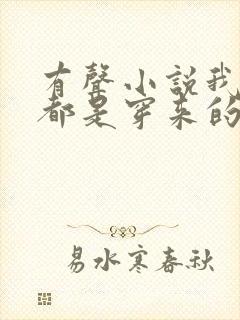 有聲小説我
都是穿来的
易水寒春秋